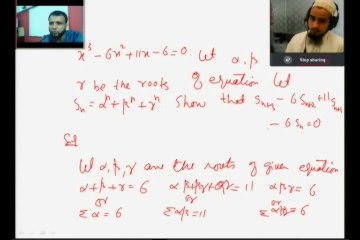 Stop sharing
x³ - 6x² + 11x - 6 = 0. Let α, β,
γ be the roots of equation Let
Sₙ = αⁿ + βⁿ + γⁿ Show that Sₙ₊₃ - 6 Sₙ₊₂ + 11 Sₙ₊₁
- 6 Sₙ = 0
Sol
Let α, β, γ are the roots of given equation
α + β + γ = 6 αβ + βγ + αγ = 11 αβγ = 6
or or or
Σα = 6 Σαβ = 11 Σαβγ = 6